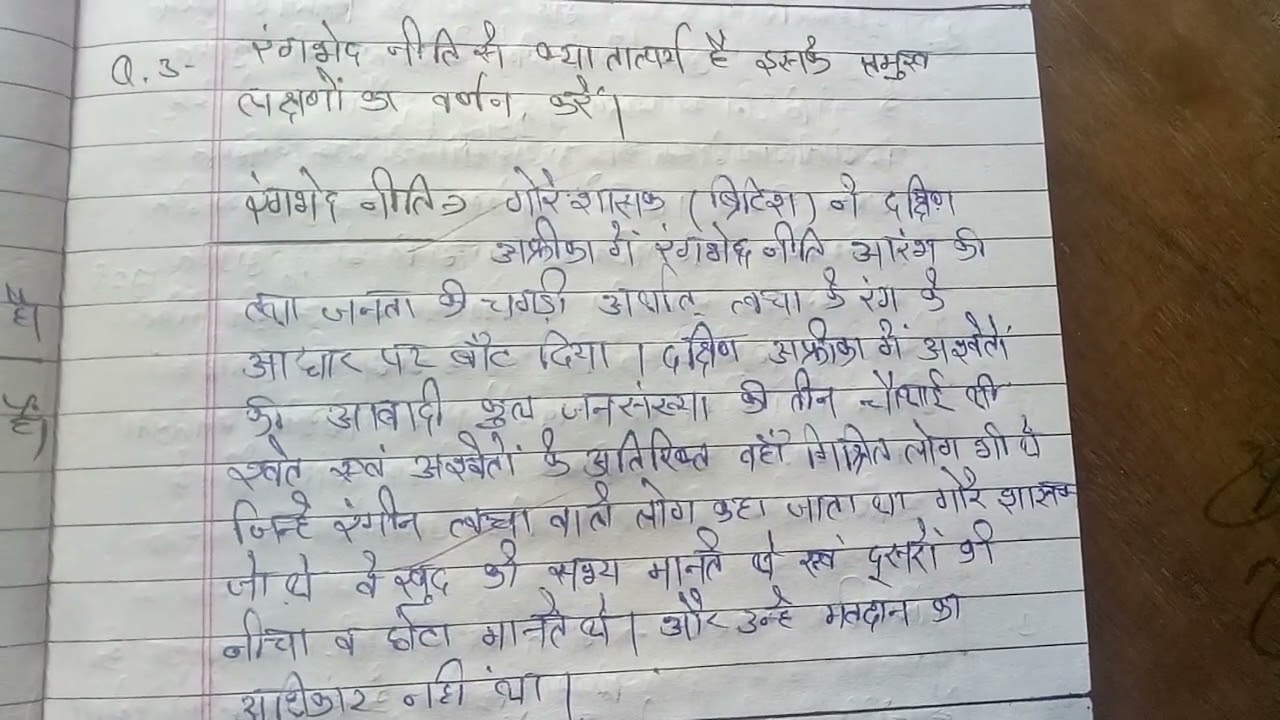 Q.3- रंगभेद नीति से क्या तात्पर्य है इसके प्रमुख
लक्षणों का वर्णन, करें।
रंगभेद नीति→ गोरे शासक (ब्रिटिश) ने दक्षिण
अफ्रीका में रंगभेद नीति आरंभ की
तथा जनता को चमड़ी अर्थात् त्वचा के रंग के
आधार पर बाँट दिया। दक्षिण अफ्रीका में अश्वेतों
की आबादी कुल जनसंख्या की तीन चौथाई थी
श्वेत एवं अश्वेतों के अतिरिक्त वहाँ मिश्रित लोग भी थे
जिन्हे रंगीन त्वचा वाले लोग कहा जाता था गोरे शासक
जो थे वे खुद को सभ्य मानते थे एवं दूसरों को
नीचा व छोटा मानते थे। और उन्हे मतदान का
अधिकार नही था।
है।
हैं।